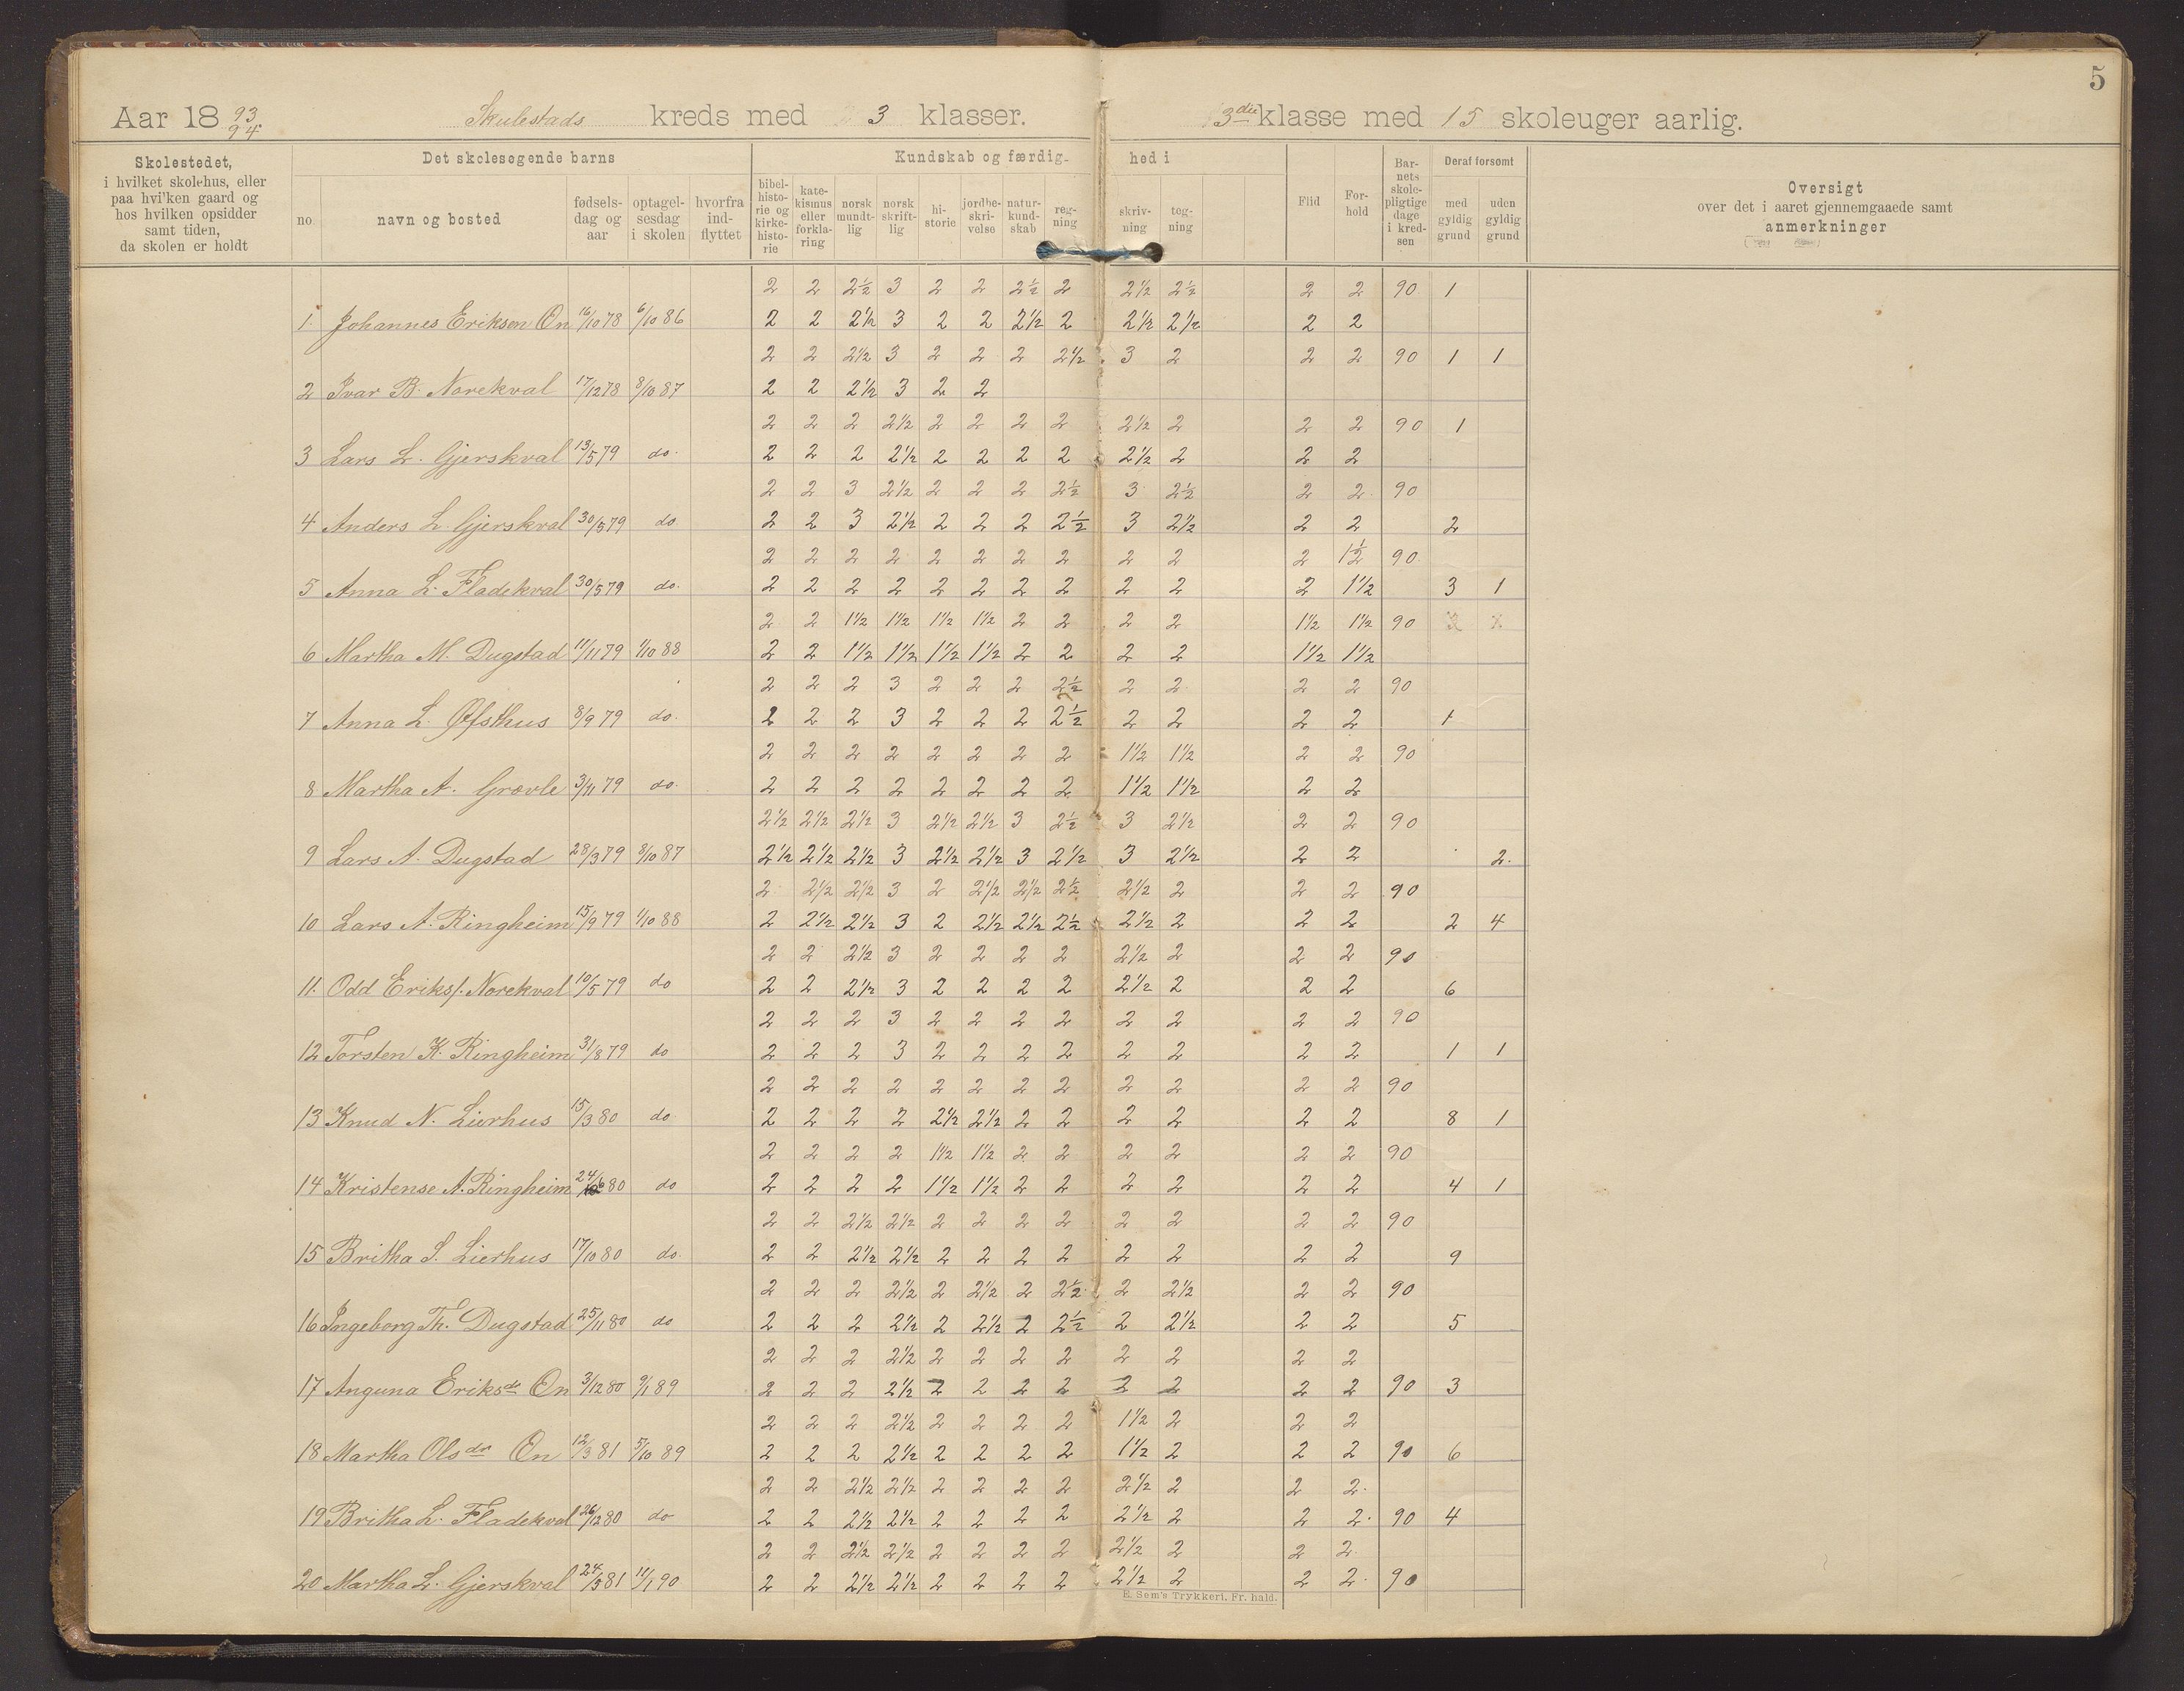 5
Aar 18 93/94. Skulestads kreds med 3 klasser. 3die klasse med 15 skoleuger aarlig.
Skolestedet, i hvilket skolehus, eller paa hvilken gaard og hos hvilken opsidder samt tiden, da skolen er holdt
Det skolesøgende barns
no navn og bosted fødsels-dag og aar optagel-sesdag i skolen hvorfra ind-flyttet
Kundskab og færdig-hed i
bibel-histo-rie og kirke-histo-rie kate-kismus eller forkla-ring norsk mundt-lig norsk skrift-lig hi-storie jordbe-skri-velse natur-kund-skab reg-ning skriv-ning teg-ning
Flid For-hold Bar-nets skole-pligtige dage i kred-sen
Deraf forsømt
med gyldig grund uden gyldig grund
Oversigt over det i aaret gjennemgaaede samt anmerkninger
2 2 2½ 3 2 2 2½ 2 2½ 2½ 2 2 90 1
1. Johannes Eriksen On 16/10 78 6/10 86 2 2 2½ 3 2 2 2½ 2 2½ 2½ 2 2
2 2 2½ 3 2 2 2 2½ 3 2 2 2 90 1 1
2 Ivar B. Norekval 17/12 78 8/10 87 2 2 2½ 3 2 2
2 2 2 2½ 2 2 2 2 2½ 2 2 2 90 1
3 Lars L. Gjerskval 13/5 79 do. 2 2 2 2½ 2 2 2 2 2½ 2 2 2
2 2 3 2½ 2 2 2 2½ 3 2½ 2 2 90
4 Anders L. Gjerskval 30/5 79 do 2 2 3 2½ 2 2 2 2½ 3 2½ 2 2 2
2 2 2 2 2 2 2 2 2 2 2 1½ 90
5 Anna L. Fladekval 30/5 79 do. 2 2 2 2 2 2 2 2 2 2 2 1½ 3 1
2 2 1½ 1½ 1½ 1½ 2 2 2 2 1½ 1½ 90
6 Martha M. Dugstad 11/11 79 1/10 88 2 2 1½ 1½ 1½ 1½ 2 2 2 2 1½ 1½
2 2 2 3 2 2 2 2½ 2 2 2 2 90
7 Anna L. Øfsthus 8/9 79 do. 2 2 2 3 2 2 2 2½ 2 2 2 2 1
2 2 2 2 2 2 2 2 1½ 1½ 2 2 90
8 Martha A. Grovle 3/11 79 do. 2 2 2 2 2 2 2 2 1½ 1½ 2 2
2½ 2½ 2½ 3 2½ 2½ 3 2½ 3 2½ 2 2 90
9 Lars A. Dugstad 28/3 79 8/10 87 2½ 2½ 2½ 3 2½ 2½ 3 2½ 3 2½ 2 2 2.
2 2½ 2½ 3 2 2½ 2½ 2½ 2½ 2 2 2 90
10 Lars A. Ringheim 15/9 79 1/10 88 2 2½ 2½ 3 2 2½ 2½ 2½ 2½ 2 2 2 2 4
2 2 2½ 3 2 2 2 2 2½ 2 2 2 90
11. Odd Eriks/. Norekval 10/5 79 do 2 2 2½ 3 2 2 2 2 2½ 2 2 2 6
2 2 2 3 2 2 2 2 2 2 2 2 90
12 Torsten K. Ringheim 31/8 79 do 2 2 2 3 2 2 2 2 2 2 2 2 1 1
2 2 2 2 2 2 2 2 2 2 2 2 90
13 Knud N. Lierhus 15/3 80 do 2 2 2 2 2½ 2½ 2 2 2 2 2 2 8 1
2 2 2 2 1½ 1½ 2 2 2 2 2 2 90
14 Kristense A. Ringheim 24/6 80 do 2 2 2 2 1½ 1½ 2 2 2 2 2 2 4 1
2 2 2½ 2½ 2 2 2 2 2 2 2 2 90
15 Britha S. Lierhus 17/10 80 do. 2 2 2½ 2½ 2 2 2 2 2 2 2 2 9
2 2 2 2½ 2 2½ 2 2½ 2 2½ 2 2 90
16 Ingeborg Th. Dugstad 25/11 80 do 2 2 2 2½ 2 2½ 2 2½ 2 2½ 2 2 5
2 2 2 2½ 2 2 2 2 2 2 2 2
17 Anguna Eriksdr On 3/12 80 9/1 89 2 2 2 2½ 2 2 2 2 2 2 2 2 90 3
2 2 2 2½ 2 2 2 2 1½ 2 2 2
18 Martha Olsdr On 12/3 81 5/10 89 2 2 2 2½ 2 2 2 2 1½ 2 2 2 90 6
2 2 2½ 2½ 2 2 2 2 2½ 2 2 2.
19 Britha L. Fladekval 26/12 80 do 2 2 2½ 2½ 2 2 2 2 2½ 2 2 2. 90 4
2 2 2½ 2½ 2 2 2 2 2½ 2 2 2
20 Martha L. Gjerskval 24/3 81 11/1 90 2 2 2½ 2½ 2 2 2 2 2½ 2 2 2. 90
E. Sem's Trykkeri, Fr. hald.